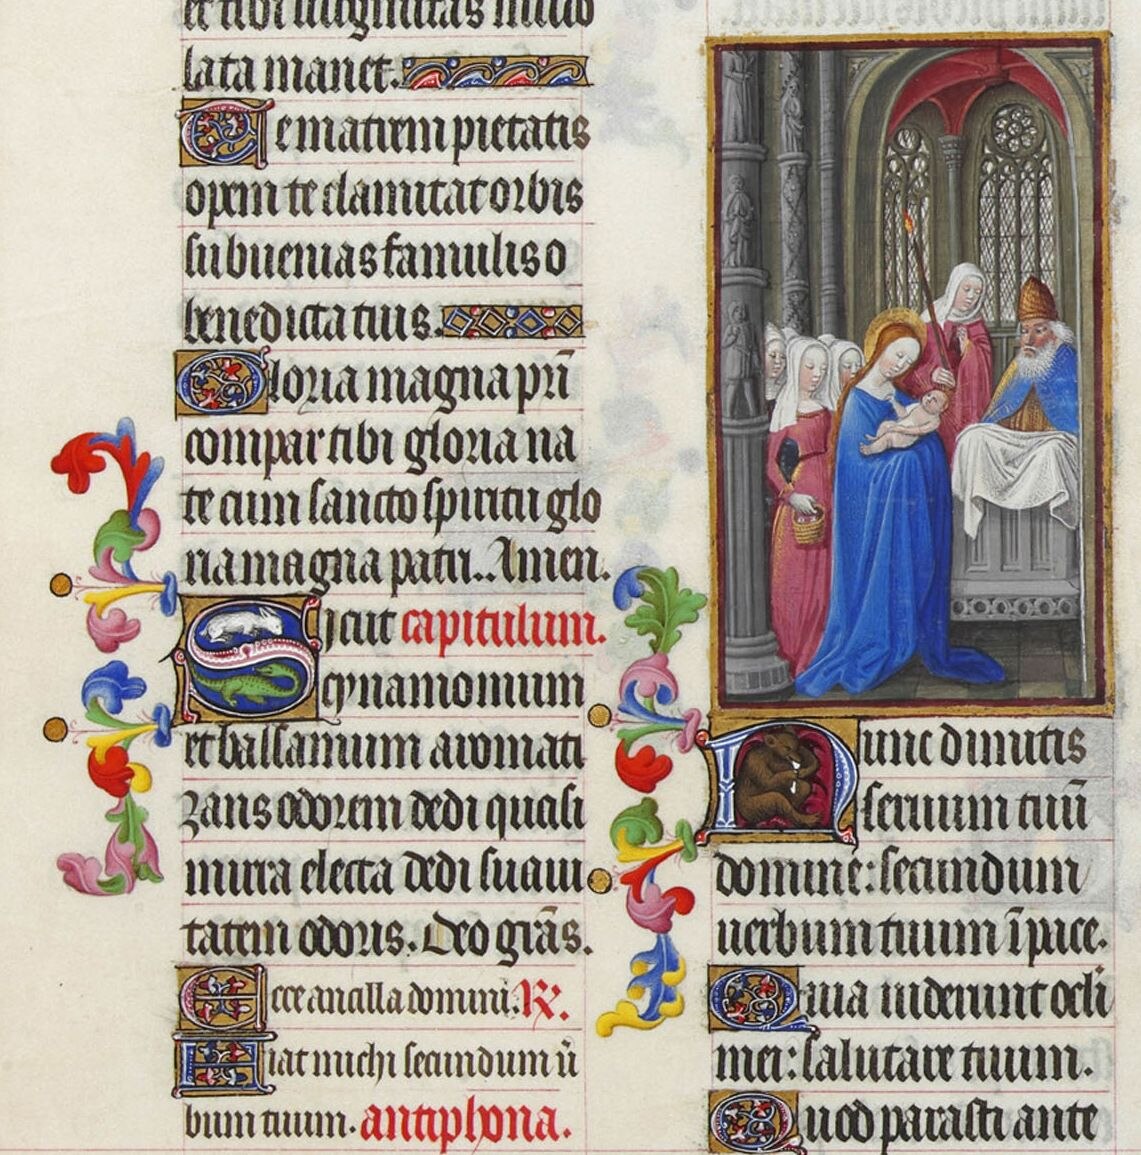 et tibi virginitas inuio
lata manet.
Te matrem pietatis
opem te clamitat orbis
subuenias famulis o
benedicta tuis.
Gloria magna pr̄i
compar tibi gloria na
te cum sancto spiritu glo
ria magna patri. Amen.
Sicut capitulum.
cynamomum
et balsamum aromati
zans odorem dedi quasi
mirra electa dedi suaui
tatem odoris. Deo gr̄as.
Ecce ancilla domini. ℟.
Fiat michi secundum ū
bum tuum. antiphona.
Nunc dimitis
seruum tuū
domine: secundum
uerbum tuum ī pace.
Quia uiderunt ocl̄i
mei: salutare tuum.
Quod parasti ante